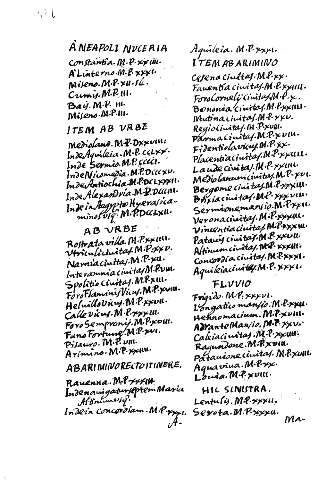 A NEAPOLI NUCERIA
Constantia. M.P. XXIIII.
A Linterno. M.P. XXXI.
Miseno. M.P. XII.
Cumis. M.P. III.
Bais. M.P. III.
Miseno. M.P. III.
ITEM AB URBE
Mediolano. M.P. DXXVIII.
Inde Aquileia. M.P. CCLXX.
Inde Sermio. M.P. CCCCI.
Inde Nicomedia. M.P.
Inde Antiochia. M.P. DCLXXXII.
Inde Alexandria. M.P. DCCCII.
Inde in Aegypto Hyerasica-
minos. M.P. DCCLXII.
AB URBE
Rostrata villa. M.P. XXIIII.
Utriculi civitas. M.P. XXV.
Narnia civitas. M.P. XII.
Interamnia civitas M.P. VIII.
Spolitio civitas. M.P. XIII.
Foro Flaminis Vicus. M.P. XVIII.
Helvillo Vicus. M.P. XXVII.
Calle vicus. M.P. XXIII.
Foro Sempronii. M.P. XVIII.
Fano Fortune. M.P. XVI.
Pisauro. M.P. VIII.
Arimino. M.P. XXIIII.
AB ARIMINO RECTO ITINERE.
Ravenna. M.P. XXXIII.
Inde navigatur septem Maria
Altinum usq.
Inde in Concordiam. M.P. XXXI.
A-
Aquileia. M.P. XXXI.
ITEM AB ARIMINO
Cesena civitas. M.P. XX.
Faventia civitas. M.P. XXIIII.
Foro Cornelii civitas M.P. X.
Bononia civitas. M.P. XXIIII.
Mutina civitas. M.P. XXV.
Regio civitas. M.P. XVII.
Parma civitas. M.P. XVIII.
Fidentiola vicus. M.P. XX.
Placentia civitas. M.P. XXIIII.
Laude civitas. M.P. XXIIII.
Mediolanum civitas. M.P. XVI.
Bergome civitas. M.P. XXXIII.
Brixia civitas. M.P. XXXVIII.
Sermionemansio. M.P. XXII.
Verona civitas. M.P. XXII.
Vincentia civitas. M.P. XXXIII.
Patavis civitas. M.P. XXVII.
Altinum civitas. M.P. XXXII.
Concordia civitas. M.P. XXXI.
Aquileia civitas. M.P. XXXI.
FLUVIO
Frigido. M.P. XXXVI.
Longatico mansio. M.P. XXII.
Hennomacium. M.P. XVIII.
Adrante Mansio. M.P. XXV.
Celeia civitas. M.P. XXIIII.
Ragundone. M.P. XVIII.
Patavione civitas. M.P. XVIII.
Aqua viva. M.P. XX.
Iovia. M.P. XVIII.
HIC SINISTRA.
Lentulis. M.P. XXXII.
Serota. M.P. XXXII.
Ma-